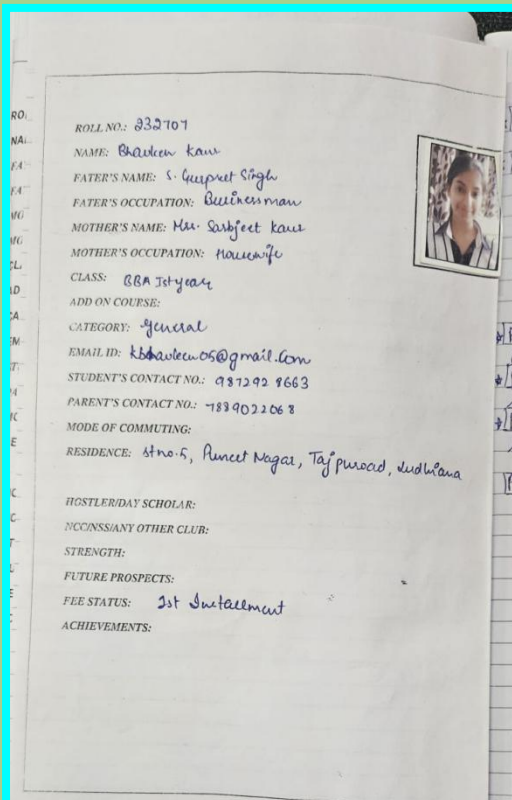 ROLL NO.: 232707
NAME: Bhavleen Kaur
FATER'S NAME: S. Gurpreet Singh
FATER'S OCCUPATION: Businessman
MOTHER'S NAME: Mrs. Sarbjeet Kaur
MOTHER'S OCCUPATION: Housewife
CLASS: BBA Ist year
ADD ON COURSE:
CATEGORY: General
EMAIL ID: kbhavleen05@gmail.com
STUDENT'S CONTACT NO.: 987292 8663
PARENT'S CONTACT NO.: 7889022068
MODE OF COMMUTING:
RESIDENCE: st no. 5, Puneet Nagar, Tajpuroad, Ludhiana
HOSTLER/DAY SCHOLAR:
NCC/NSS/ANY OTHER CLUB:
STRENGTH:
FUTURE PROSPECTS:
FEE STATUS: Ist Installment
ACHIEVEMENTS: